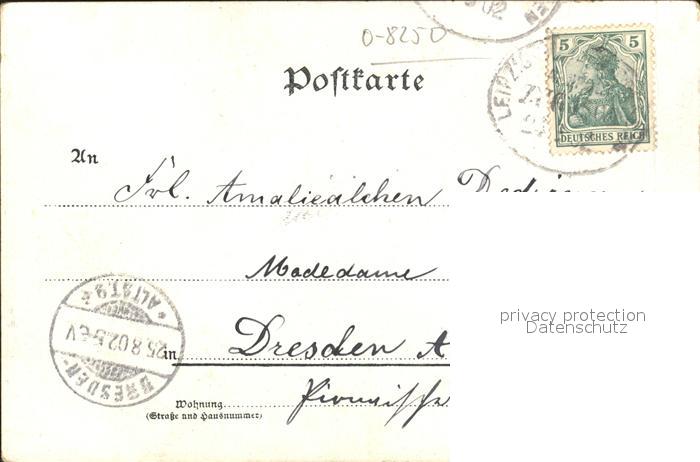 02 EN
0-8250
Postkarte
5 5
DEUTSCHES REICH
LEIPZIG
An
Frl. Amalie
Modedame
privacy protection
Datenschutz
Dresden A
in
DRESDEN-
25.8.02. 5-6V
* ALTST. 9 *
Pirnaische
Wohnung
(Straße und Hausnummer)